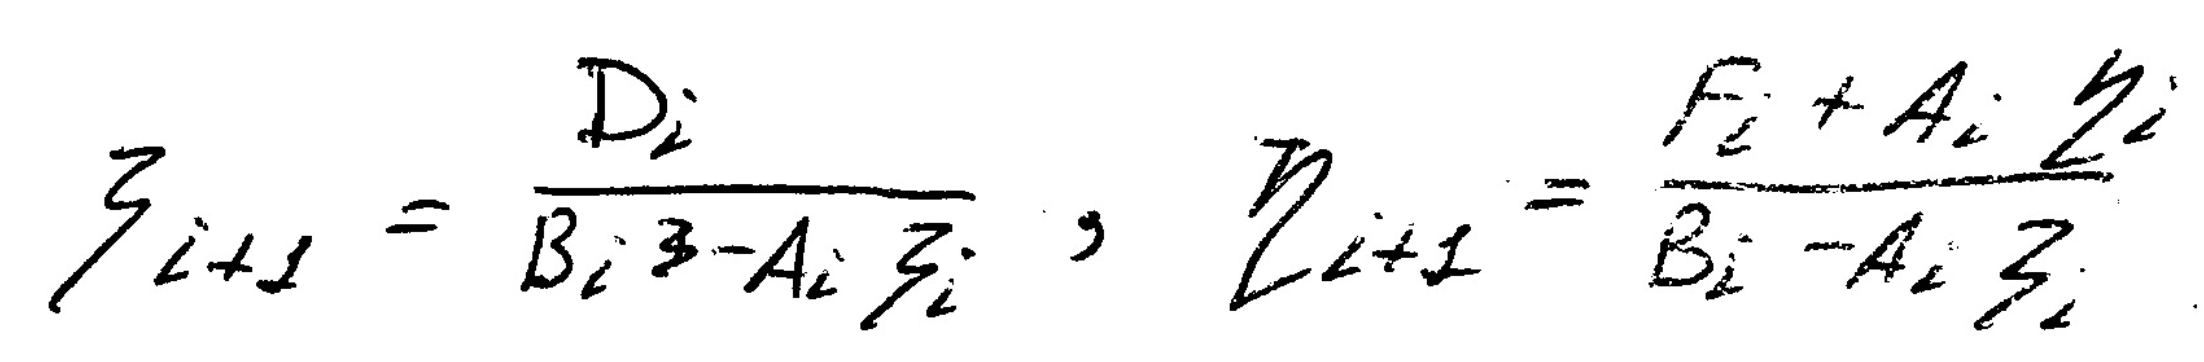 ξ_{i+1} = \frac{D_i}{B_i 3 - A_i ξ_i} , η_{i+1} = \frac{F_i + A_i η_i}{B_i - A_i ξ_i}